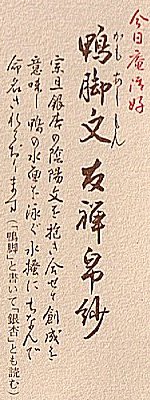 今日庵御好
かもあしもん
鴨脚文友禅帛紗
宗旦銀杏の陰陽文を抱き合せ創成を
意味し鴨の水面を泳ぐ水掻にちなんで
命名されております(「鴨脚」と書いて「銀杏」とも読む)